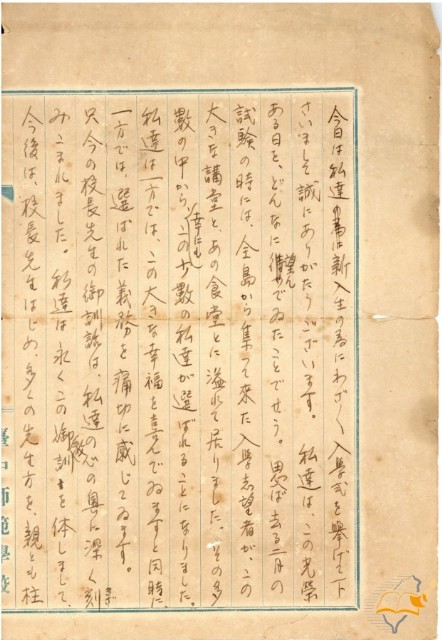 今日は私達新入生の為にわざ〱入學式を擧げて下
さいまして誠にありがたうございます。 私達は、この光榮
ある日を、どんなに待望んでゐたことでせう。 思ば去る二月の
試驗の時には、全島から集って來た入學志望者がこの
大きな講堂と、あの食堂とに溢れて居りました。その多
數の中から、幸にもこの少數の私達が選ばれることになりました。
私達は一方では、この大きな幸福を喜んでゐますと同時に、
一方では、選ばれた義務を痛切に感じてゐます。
只今の校長先生の御訓話は、私達の心の奥に深く刻
みこまれました。 私達は永くこの御訓を体しまして、
今後は、校長先生はじめ、多くの先生方を、親とも柱
臺中師範學校